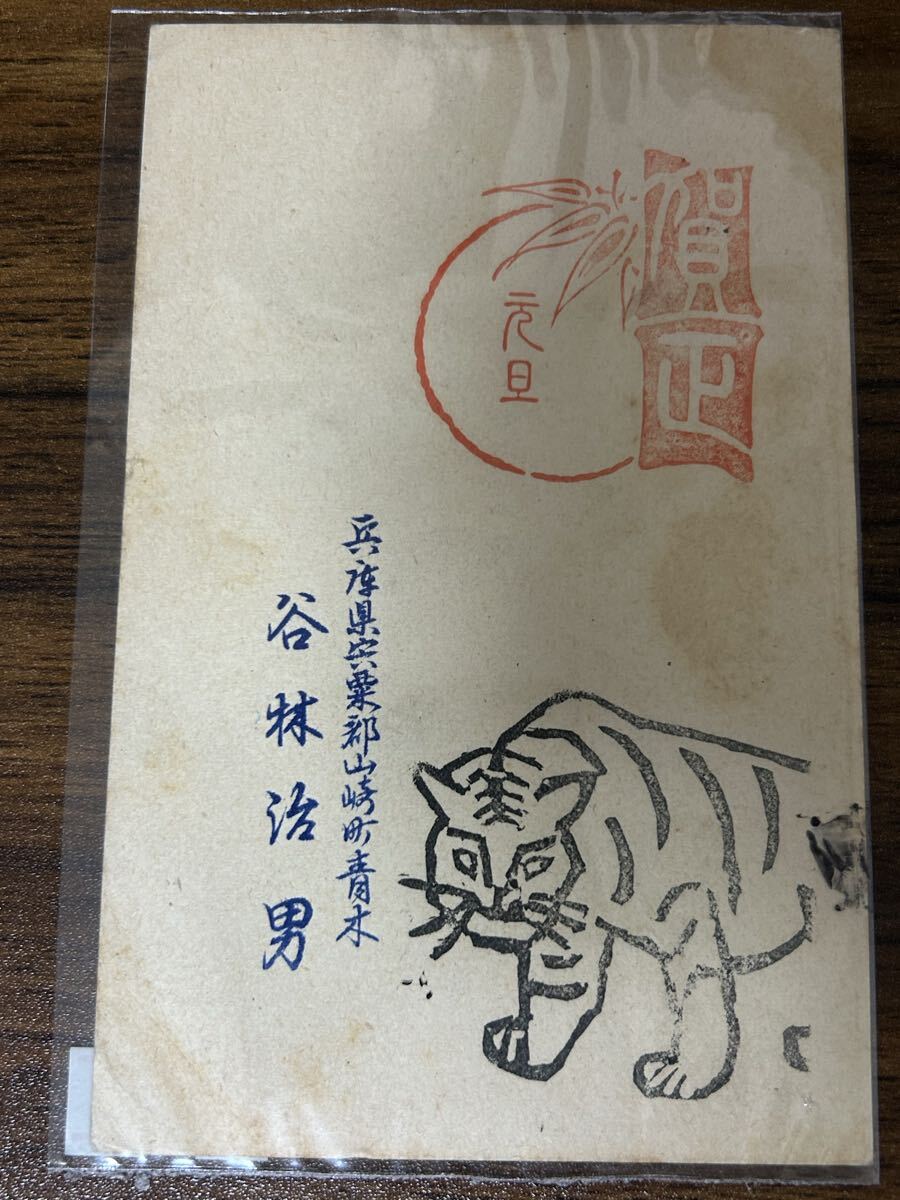 賀正
元旦
兵庫県宍粟郡山崎町青木
谷林治男